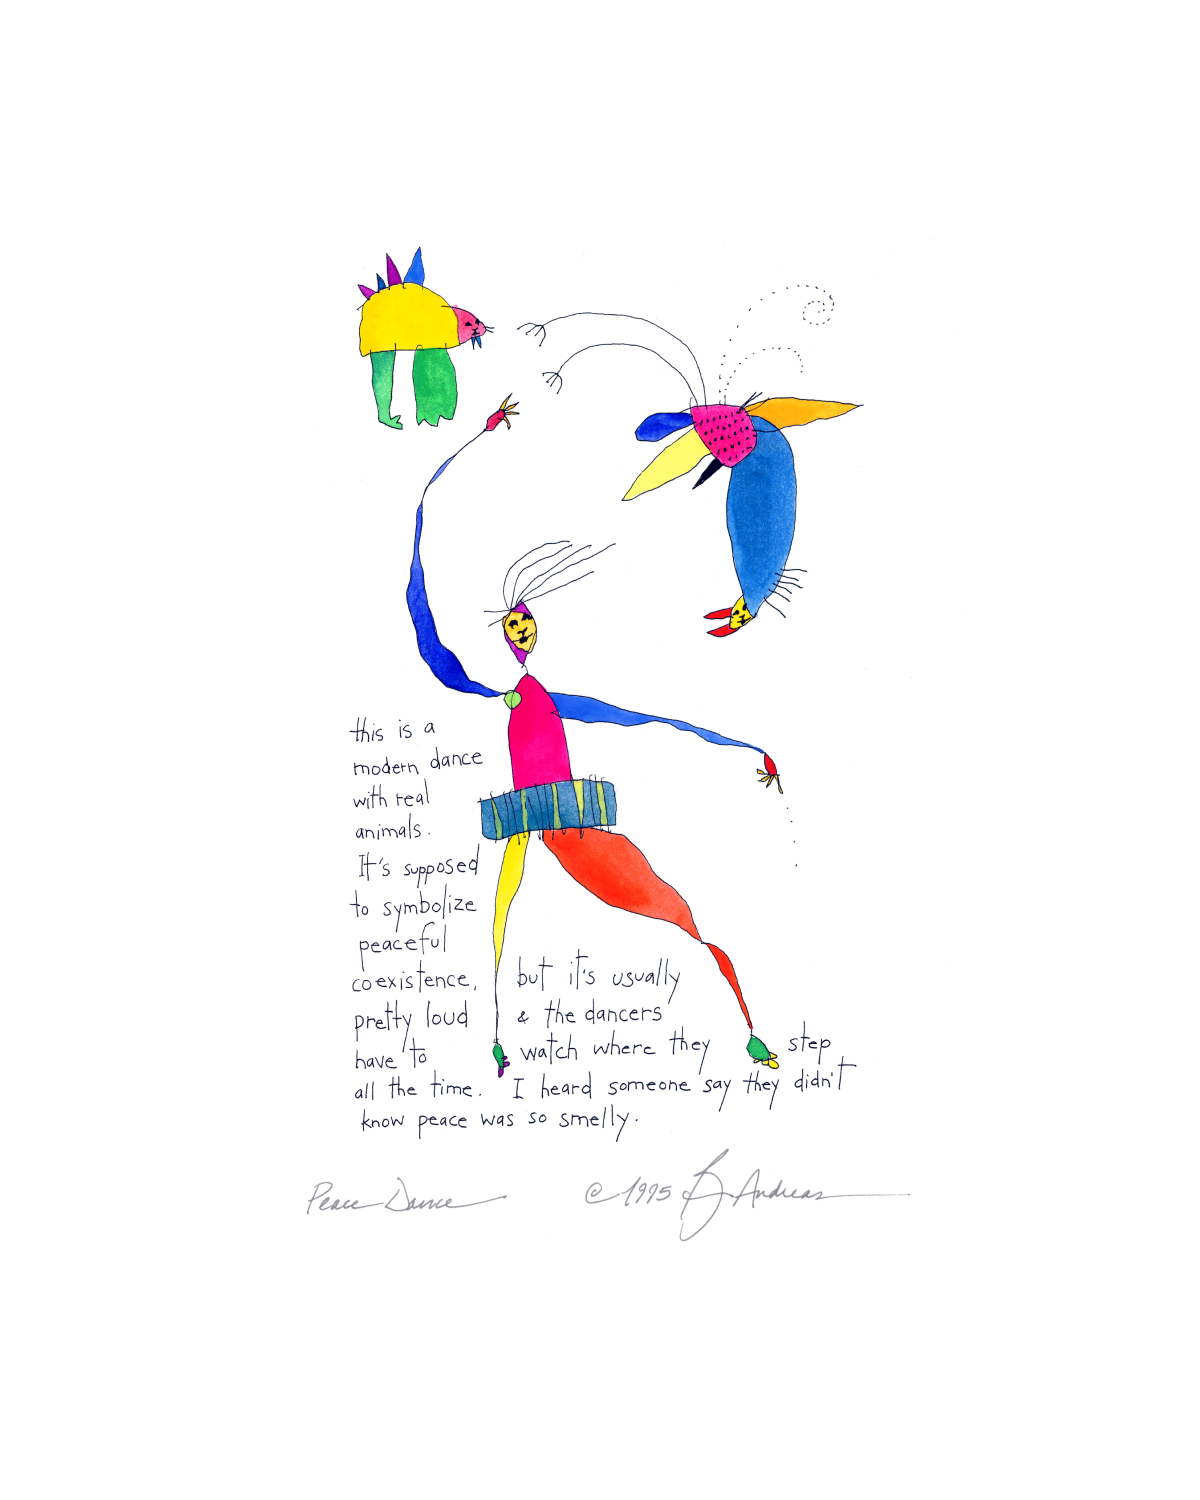 this is a
modern dance
with real
animals.
It's supposed
to symbolize
peaceful
coexistence, but it's usually
pretty loud & the dancers
have to watch where they step
all the time. I heard someone say they didn't
know peace was so smelly.
Peace Dance © 1995 B Andreas